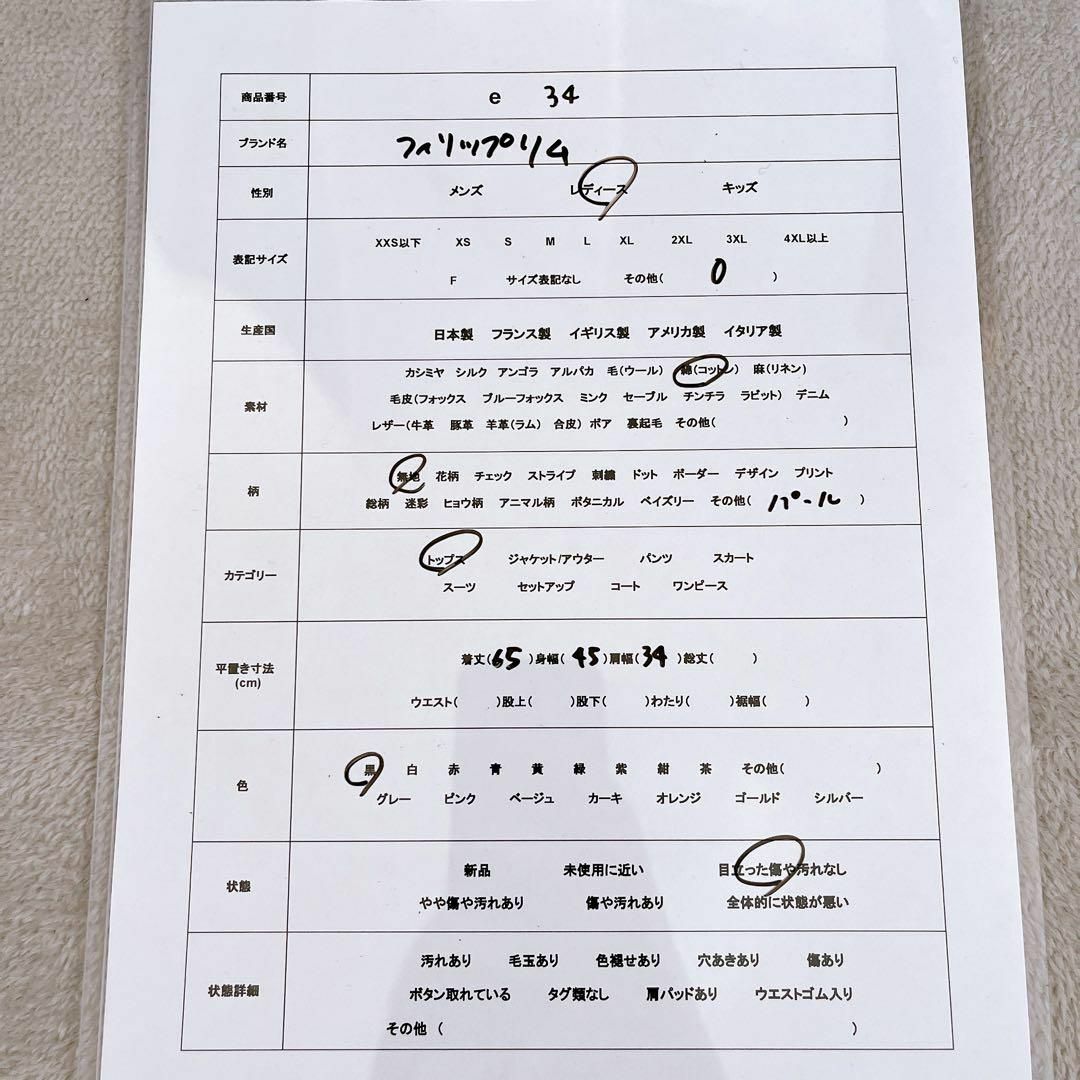 商品番号 e 34
ブランド名 フィリップリム
性別 メンズ レディース キッズ
XXS以下 XS S M L XL 2XL 3XL 4XL以上
表記サイズ
F サイズ表記なし その他( 0 )
生産国 日本製 フランス製 イギリス製 アメリカ製 イタリア製
カシミヤ シルク アンゴラ アルパカ 毛(ウール) 綿(コットン) 麻(リネン)
素材 毛皮(フォックス ブルーフォックス ミンク セーブル チンチラ ラビット) デニム
レザー(牛革 豚革 羊革(ラム) 合皮) ボア 裏起毛 その他( )
柄 無地 花柄 チェック ストライプ 刺繍 ドット ボーダー デザイン プリント
総柄 迷彩 ヒョウ柄 アニマル柄 ボタニカル ペイズリー その他( パール )
カテゴリー トップス ジャケット/アウター パンツ スカート
スーツ セットアップ コート ワンピース
平置き寸法 着丈(65)身幅(45)肩幅(34)総丈( )
(cm)
ウエスト( )股上( )股下( )わたり( )裾幅( )
色 黒 白 赤 青 黄 緑 紫 紺 茶 その他( )
グレー ピンク ベージュ カーキ オレンジ ゴールド シルバー
状態 新品 未使用に近い 目立った傷や汚れなし
やや傷や汚れあり 傷や汚れあり 全体的に状態が悪い
状態詳細 汚れあり 毛玉あり 色褪せあり 穴あきあり 傷あり
ボタン取れている タグ類なし 肩パッドあり ウエストゴム入り
その他 ( )